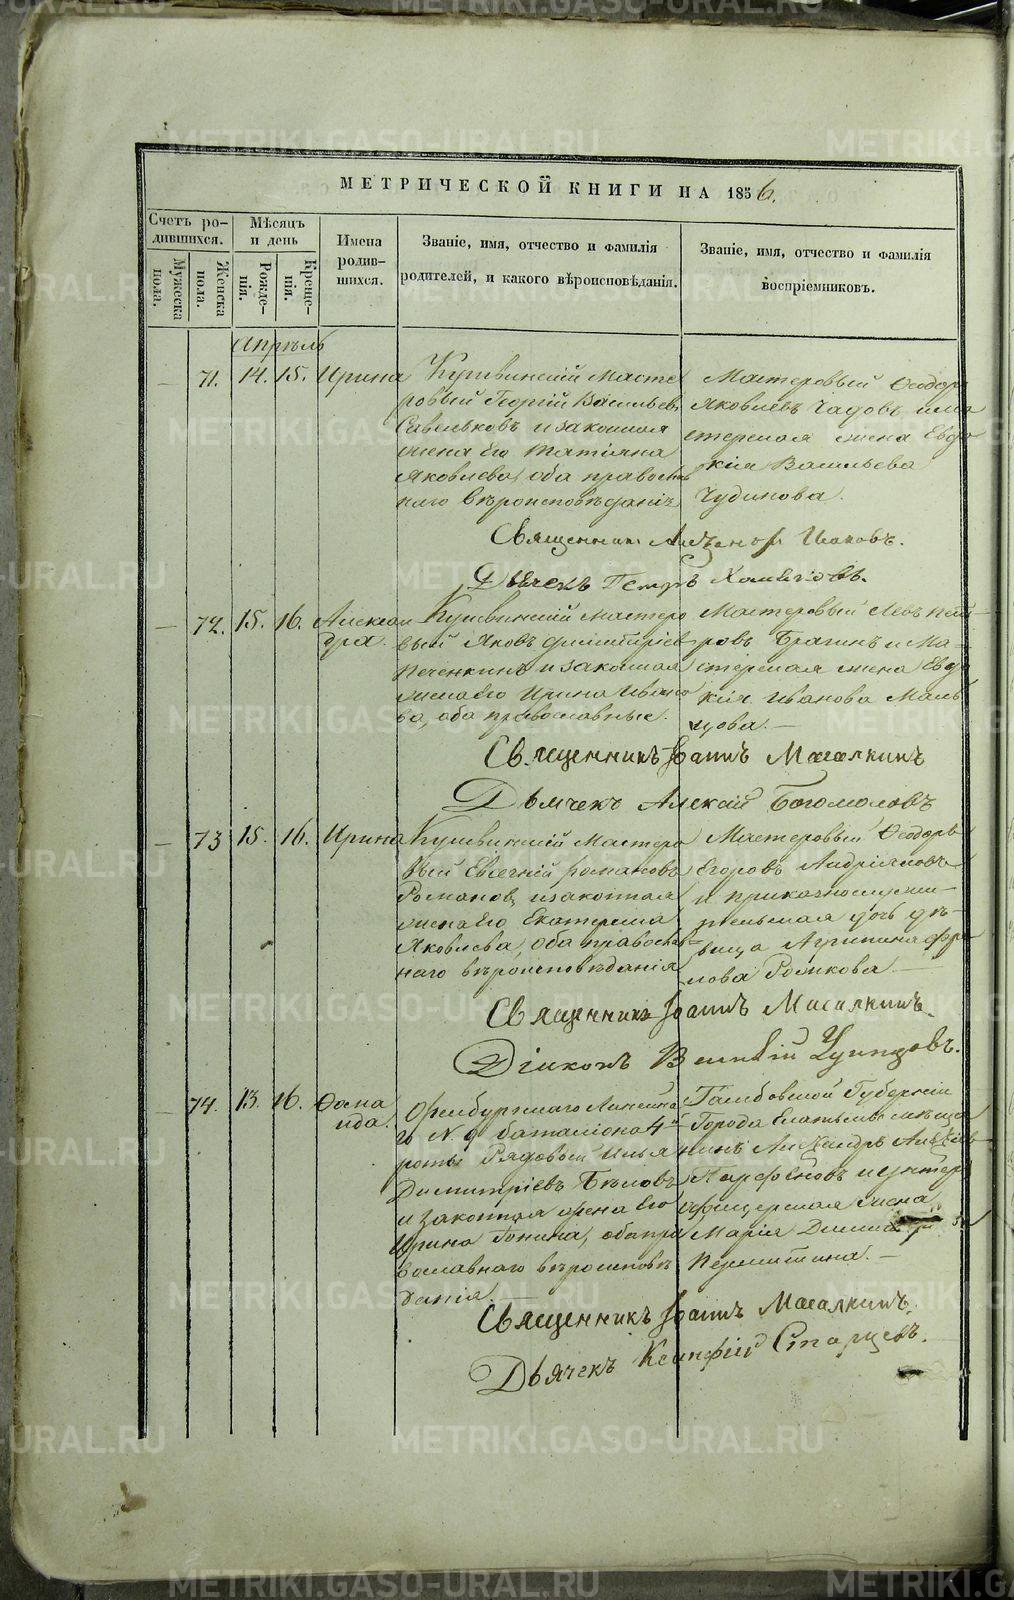 METRIKI.GASO-URAL.RU
МЕТРИЧЕСКОЙ КНИГИ НА 1856.
Счетъ ро-
дившихся.
Мужеска пола.
Женска пола.
Мѣсяцъ
и день
Рожде-
нія.
Креще-
нія.
Имена
родив-
шихся.
Званіе, имя, отчество и фамилія
родителей, и какого вѣроисповѣданія.
Званіе, имя, отчество и фамилія
воспріемниковъ.
Апрѣль
— 71. 14. 15. Ирина
Кушвинскій Масте
ровый Георгій Васильевъ
Савельковъ и законная
жена его Татіяна
Яковлева, оба правосла
наго вѣроисповѣданія
Мастеровый Ѳеодоръ
Яковлевъ Чадовъ и ма
стерская жена Евдо
кія Васильева
Чудинова.
Священникъ Иаковъ.
Дьячекъ Петръ
— 72. 15. 16. Алексан
дра.
Кушвинскій мастеро
вый Яковъ Димитріев
Печенкинъ и законная
жена его Ирина Ивано
ва, оба православные.
Мастеровый Левъ Пет
ровъ Брагинъ и Ма-
стерская жена Евдо
кія Иванова Маль
цова. —
Священникъ Іоаннъ Масалкинъ
Дьячекъ Алексій Богомоловъ
— 73 15. 16. Ирина
Кушвинскій Мастеро
вый Евгеній Романовъ
Романовъ, и законная
жена его Екатерина
Яковлева, оба правосла-
наго вѣроисповѣданія
Мастеровый Ѳеодоръ
Егоровъ Андріяновъ
и приказнослужи-
тельская дочь дѣ-
вица Агрипина Фро
лова Рожкова. —
Священникъ Іоаннъ Масалкинъ.
Діаконъ Василій
— 74. 13. 16. Ѳома
ида.
Оренбургскаго Линейна
го N. 9 баталіона 4й
роты Рядовой Илья
Димитріевъ Бѣловъ
и законная жена его
Ирина Фомина, оба пра
вославнаго вѣроисповѣ
данія. —
Тамбовской Губерніи
Города Елатьмы мѣща
нинъ Александръ Алексѣев
Парфеновъ и унтеръ
офицерская жена
Марія
Перминина. —
Священникъ Іоаннъ Масалкинъ.
Дьячекъ Ксенфій Старцевъ.